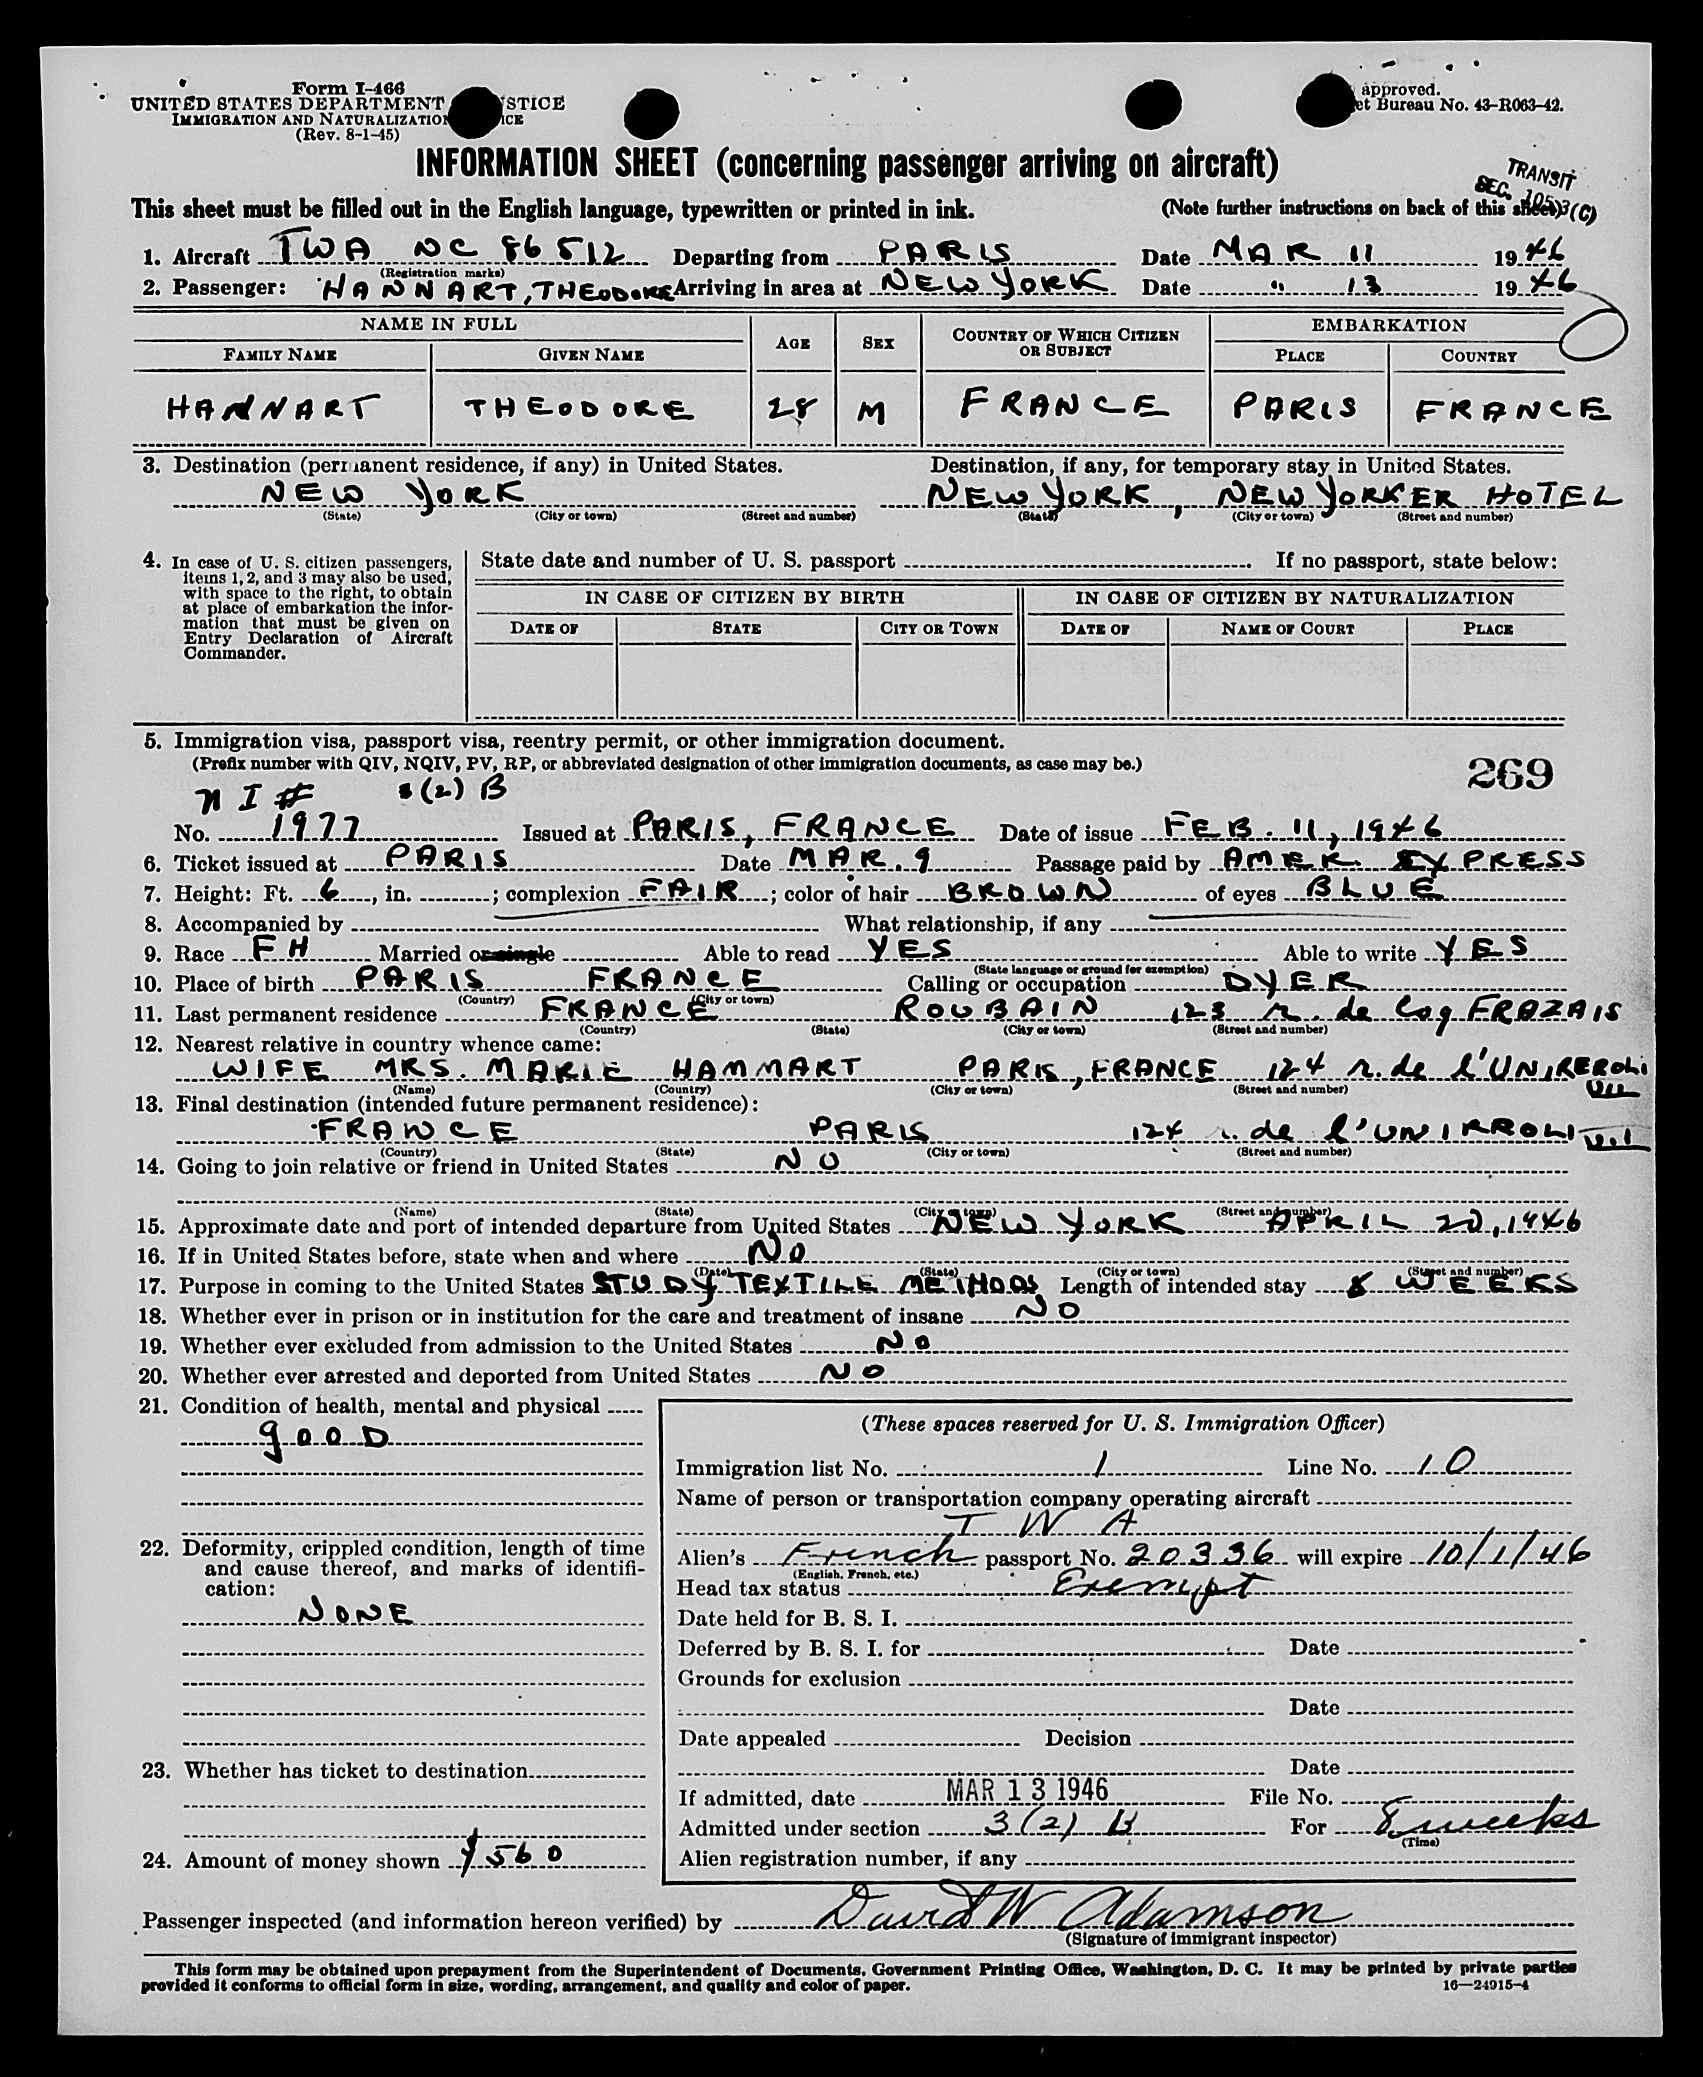 Form I-466
UNITED STATES DEPARTMENT STICE
IMMIGRATION AND NATURALIZATION ICE
(Rev. 8-1-45)
approved.
et Bureau No. 43-R063-42.
INFORMATION SHEET (concerning passenger arriving on aircraft)
TRANSIT
SEC. 3(C)
This sheet must be filled out in the English language, typewritten or printed in ink. (Note further instructions on back of this sheet)
1. Aircraft TWA NC 86512 Departing from PARIS Date MAR 11 1946
(Registration marks)
2. Passenger: HANNART, THEODORE Arriving in area at NEW YORK Date " 13 1946
NAME IN FULL AGE SEX COUNTRY OF WHICH CITIZEN OR SUBJECT EMBARKATION
FAMILY NAME GIVEN NAME PLACE COUNTRY
HANNART THEODORE 28 M FRANCE PARIS FRANCE
3. Destination (permanent residence, if any) in United States. Destination, if any, for temporary stay in United States.
NEW YORK NEW YORK, NEW YORKER HOTEL
(State) (City or town) (Street and number) (State) (City or town) (Street and number)
4. In case of U. S. citizen passengers, items 1, 2, and 3 may also be used, with space to the right, to obtain at place of embarkation the information that must be given on Entry Declaration of Aircraft Commander.
State date and number of U. S. passport . If no passport, state below:
IN CASE OF CITIZEN BY BIRTH IN CASE OF CITIZEN BY NATURALIZATION
DATE OF STATE CITY OR TOWN DATE OF NAME OF COURT PLACE
5. Immigration visa, passport visa, reentry permit, or other immigration document.
(Prefix number with QIV, NQIV, PV, RP, or abbreviated designation of other immigration documents, as case may be.)
269
N I # 3(2) B
No. 1977 Issued at PARIS, FRANCE Date of issue FEB. 11, 1946
6. Ticket issued at PARIS Date MAR. 9 Passage paid by AMER. EXPRESS
7. Height: Ft. 6, in. ; complexion FAIR; color of hair BROWN of eyes BLUE
8. Accompanied by What relationship, if any
9. Race FH Married or single Able to read YES Able to write YES
(State language or ground for exemption)
10. Place of birth PARIS FRANCE Calling or occupation DYER
(Country) (City or town)
11. Last permanent residence FRANCE ROUBAIN 123 r. de Coq FRAZAIS
(Country) (State) (City or town) (Street and number)
12. Nearest relative in country whence came:
WIFE MRS. MARIE HAMMART PARIS, FRANCE 124 r. de l'
(Name) (Country) (City or town) (Street and number)
13. Final destination (intended future permanent residence):
FRANCE PARIS 124 r. de l'
(Country) (State) (City or town) (Street and number)
14. Going to join relative or friend in United States NO
(Name) (State) (City or town) (Street and number)
15. Approximate date and port of intended departure from United States NEW YORK APRIL 20, 1946
16. If in United States before, state when and where NO
(Date) (State) (City or town) (Street and number)
17. Purpose in coming to the United States STUDY TEXTILE METHODS Length of intended stay 8 WEEKS
18. Whether ever in prison or in institution for the care and treatment of insane NO
19. Whether ever excluded from admission to the United States NO
20. Whether ever arrested and deported from United States NO
21. Condition of health, mental and physical
GOOD
22. Deformity, crippled condition, length of time
and cause thereof, and marks of identification:
NONE
23. Whether has ticket to destination
24. Amount of money shown $560
(These spaces reserved for U. S. Immigration Officer)
Immigration list No. 1 Line No. 10
Name of person or transportation company operating aircraft
TWA
Alien's French passport No. 20336 will expire 10/1/46
(English, French, etc.)
Head tax status Exempt
Date held for B. S. I.
Deferred by B. S. I. for Date
Grounds for exclusion
Date
Date appealed Decision
Date
If admitted, date MAR 13 1946 File No.
Admitted under section 3(2) B For 8 weeks
(Time)
Alien registration number, if any
Passenger inspected (and information hereon verified) by David W Adamson
(Signature of immigrant inspector)
This form may be obtained upon prepayment from the Superintendent of Documents, Government Printing Office, Washington, D. C. It may be printed by private parties
provided it conforms to official form in size, wording, arrangement, and quality and color of paper. 16—24915-4